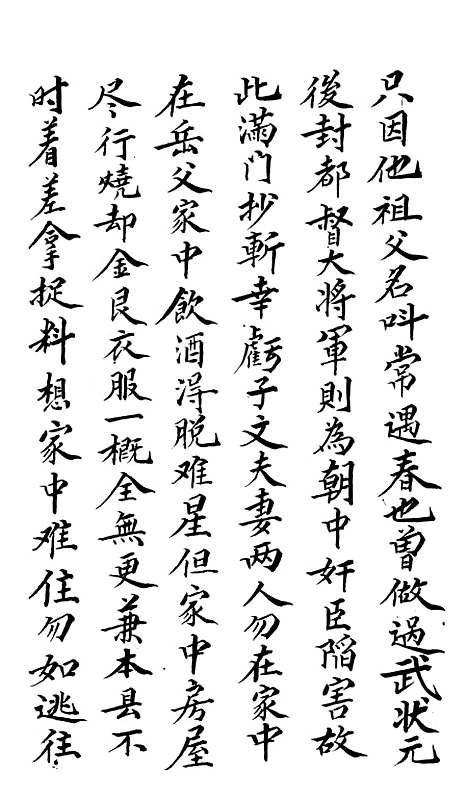 只因他祖父名呌常遇春也曾做過武状元
後封都督大将軍則為朝中奸臣陷害故
此滿门抄斬幸虧子文夫妻两人勿在家中
在岳父家中飲酒淂脱难星但家中房屋
尽行燒却金艮衣服一概全無更兼本县不
时着差拿捉料想家中难住勿如逃往